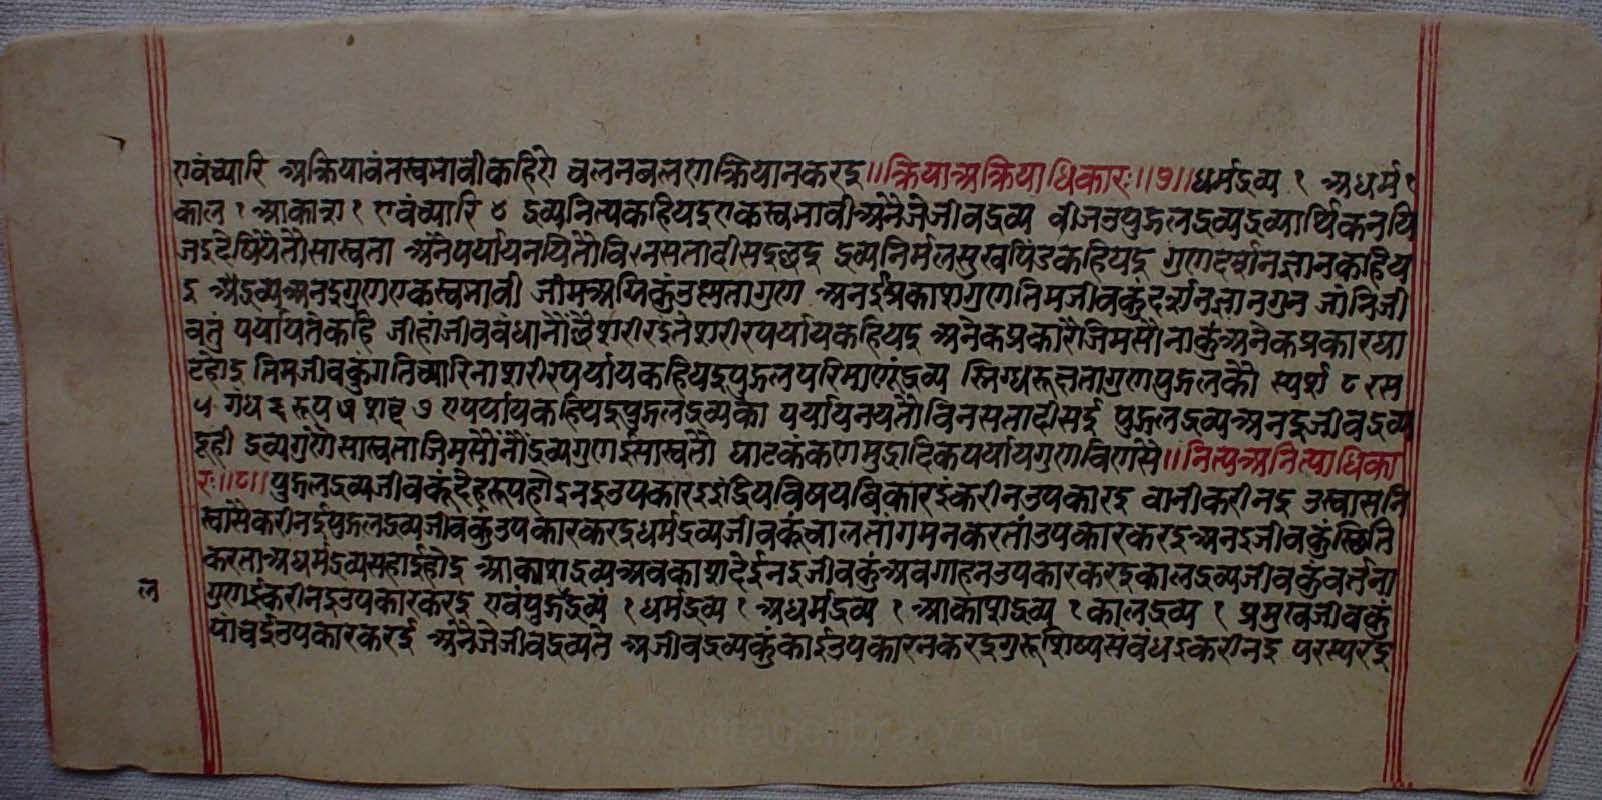 एवंच्यारि अक्रियावंतस्वभावीकहिऐ चलनबलणक्रियानकरइ॥क्रियाअक्रियाधिकारः॥७॥धर्मद्रव्य १ अधर्म१
काल १ आकाश १ एवंच्यारि ४ द्रव्यनित्यकहियइएकस्वभावीअनेजेजीवद्रव्य बीजउपुद्गलद्रव्यद्रव्यार्थिकनयि
सास्वता अनेपर्यायनयितौविनसतादीसइछइ द्रव्यनिर्मलसुखपिंडकहियइ गुणदर्शनज्ञानकहिय
इ अद्रव्यअनइगुणएकस्वभावी जीमअग्निकुंउष्णतागुण अनइप्रकाशगुणतिमजीवकुंदर्शनज्ञानगुन
पर्यायतेकहि जीहांजीवबंधानौछैशरीरइतेशरीरपर्यायकहियइ अनेकप्रकारैजिमसोनाकुंअनेकप्रकारघा
टहोइ तिमजीवकुंगतिच्यारिनाशरीरपर्यायकहियइपुद्गलपरिमाणुंद्रव्य स्निग्धरूक्षतागुणपुद्गलकौ स्पर्श ८ रस
५ गंध २ रूप ५ शब्द ७ एपर्यायकहियइपुद्गलद्रव्यका पर्यायनयतौविनसतादीसई पुद्गलद्रव्यअनइजीवद्रव्य
द्रव्यगुणेसास्वताजिमसोनौद्रव्यगुणईसास्वतौ घाटकंकणमुद्रादिकपर्यायगुणविणसे॥नित्यअनित्याधिका
रः॥८॥पुद्गलद्रव्यजीवकूंदेहरूपहोइनइउपकारइइंद्रियविषयविकारइंकरीनउपकारइ वानीकरीनइ उस्वासनि
स्वासैकरीनईपुद्गलद्रव्यजीवकुंउपकारकरइधर्मद्रव्यजीवकूंचालतागमनकरतांउपकारकरइअनइजीवकुंस्थिति
करताअधर्मद्रव्यसहाईहोइ आकाशद्रव्यअवकाशदेईनइजीवकुंअवगाहनउपकारकरइकालद्रव्यजीवकुंवर्तना
ल
गुणइंकरीनइउपकारकरइ एवंपुद्गद्रव्य १ धर्मद्रव्य १ अधर्मद्रव्य १ आकाशद्रव्य १ कालद्रव्य १ प्रमुखजीवकुं
पांचईउपकारकरई अनेजेजीवद्रव्यते अजीवद्रव्यकुंकाईउपकारनकरइगुरूशिष्यसंबंधइकरीनइ परस्परइ